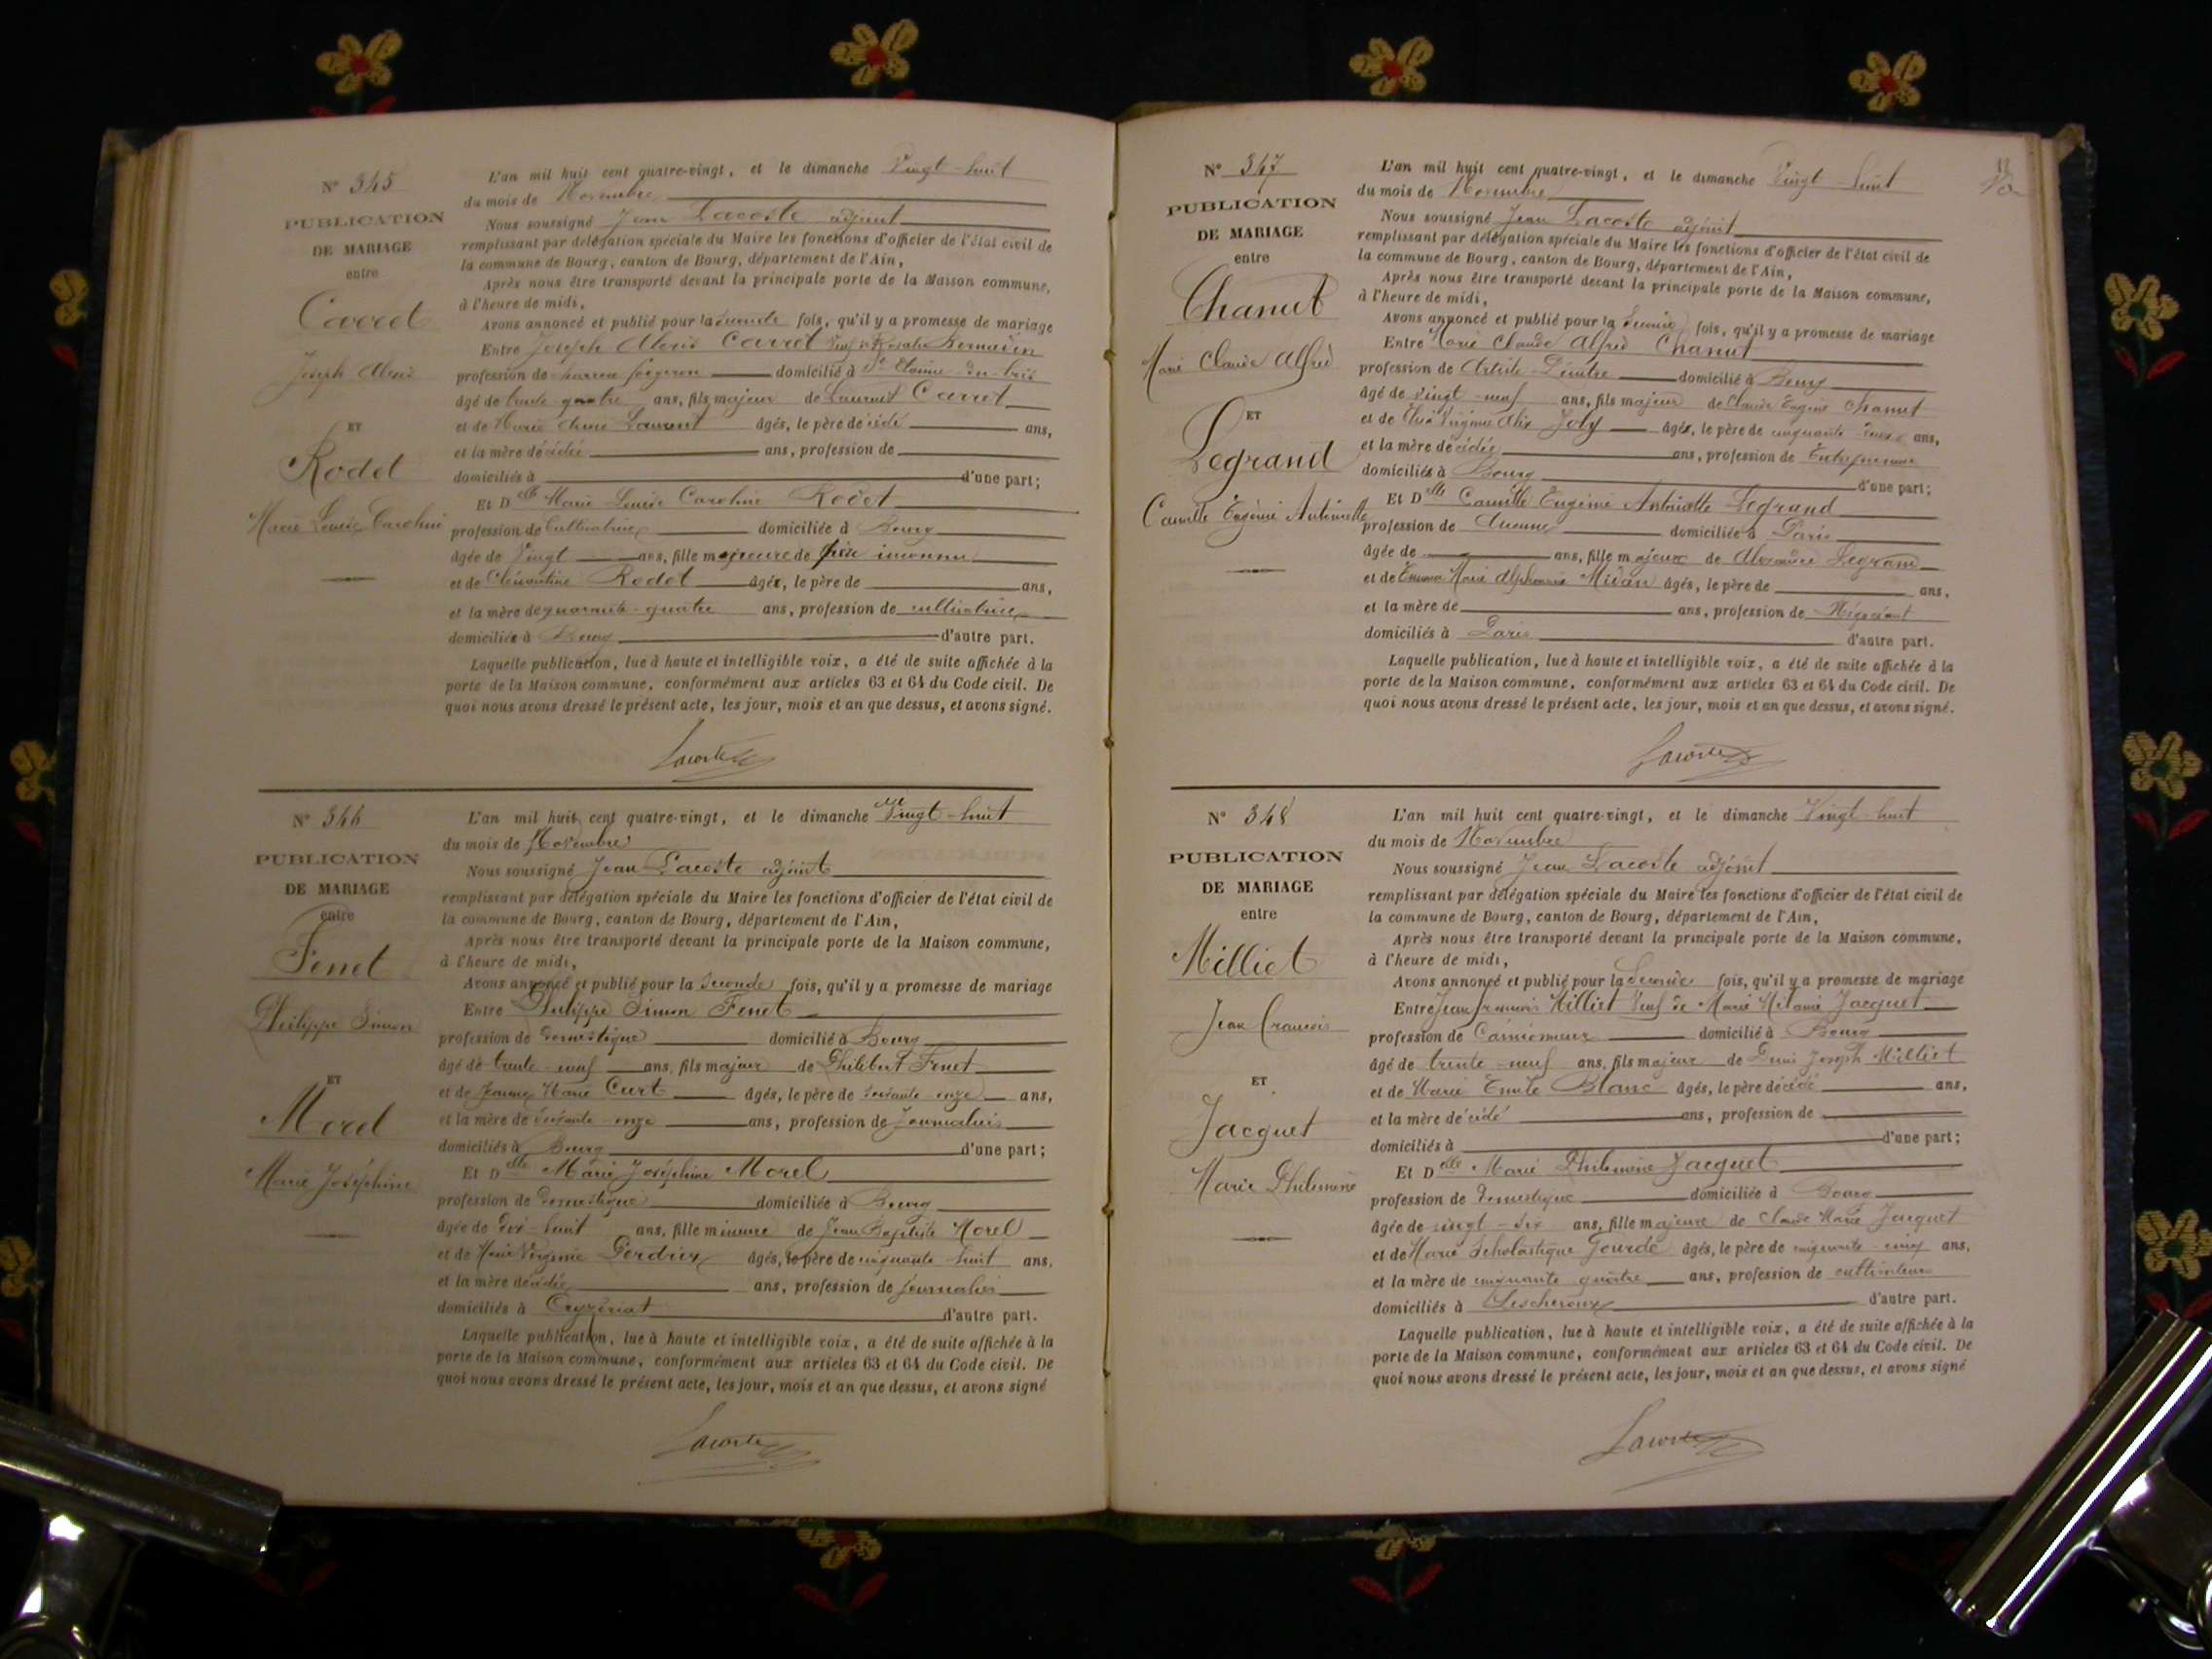 N° 345
PUBLICATION
DE MARIAGE
entre
Carret
Joseph Alexis
ET
Rodet
Marie Louise Caroline
L'an mil huit cent quatre-vingt, et le dimanche Vingt-huit
du mois de Novembre
Nous soussigné Jean Lacoste adjoint
remplissant par délégation spéciale du Maire les fonctions d'officier de l'état civil de
la commune de Bourg, canton de Bourg, département de l'Ain,
Après nous être transporté devant la principale porte de la Maison commune,
à l'heure de midi,
Avons annoncé et publié pour la Seconde fois, qu'il y a promesse de mariage
Entre Joseph Alexis Carret Veuf de Rosalie Bernadin
profession de forgeron domicilié à
âgé de trente-quatre ans, fils majeur de Laurent Carret
et de Marie Anne Laurent âgés, le père décédé ans,
et la mère décédée ans, profession de
domiciliés à d'une part;
Et Delle Marie Louise Caroline Rodet
profession de Cultivatrice domiciliée à Bourg
âgée de Vingt ans, fille majeure de père inconnu
et de Clémentine Rodet âgés, le père de ans,
et la mère de quarante-quatre ans, profession de cultivatrice
domiciliée à Bourg d'autre part.
Laquelle publication, lue à haute et intelligible voix, a été de suite affichée à la
porte de la Maison commune, conformément aux articles 63 et 64 du Code civil. De
quoi nous avons dressé le présent acte, les jour, mois et an que dessus, et avons signé.
Lacoste
N° 346
PUBLICATION
DE MARIAGE
entre
Fenet
Philippe Simon
ET
Morel
Marie Joséphine
L'an mil huit cent quatre-vingt, et le dimanche Vingt-huit
du mois de Novembre
Nous soussigné Jean Lacoste adjoint
remplissant par délégation spéciale du Maire les fonctions d'officier de l'état civil de
la commune de Bourg, canton de Bourg, département de l'Ain,
Après nous être transporté devant la principale porte de la Maison commune,
à l'heure de midi,
Avons annoncé et publié pour la Seconde fois, qu'il y a promesse de mariage
Entre Philippe Simon Fenet
profession de domestique domicilié à Bourg
âgé de trente-neuf ans, fils majeur de Philibert Fenet
et de Jeanne Marie Curt âgés, le père de soixante onze ans,
et la mère de soixante-onze ans, profession de Journaliers
domiciliés à Bourg d'une part;
Et Delle Marie Joséphine Morel
profession de domestique domiciliée à Bourg
âgée de dix-huit ans, fille mineure de Jean Baptiste Morel
et de Marie Virginie Perdrix âgés, le père de cinquante huit ans,
et la mère décédée ans, profession de journalier
domiciliés à Ceyzériat d'autre part.
Laquelle publication, lue à haute et intelligible voix, a été de suite affichée à la
porte de la Maison commune, conformément aux articles 63 et 64 du Code civil. De
quoi nous avons dressé le présent acte, les jour, mois et an que dessus, et avons signé
Lacoste
N° 347
PUBLICATION
DE MARIAGE
entre
Chanut
Marie Claude Alfred
ET
Legrand
Camille Eugénie Antoinette
L'an mil huit cent quatre-vingt, et le dimanche Vingt-huit
du mois de Novembre
Nous soussigné Jean Lacoste adjoint
remplissant par délégation spéciale du Maire les fonctions d'officier de l'état civil de
la commune de Bourg, canton de Bourg, département de l'Ain,
Après nous être transporté devant la principale porte de la Maison commune,
à l'heure de midi,
Avons annoncé et publié pour la fois, qu'il y a promesse de mariage
Entre Marie Claude Alfred Chanut
profession de Artiste Peintre domicilié à Bourg
âgé de vingt-neuf ans, fils majeur de Claude Eugène Chanut
et de Virginie Alix Joly âgés, le père de cinquante ans,
et la mère décédée ans, profession de Entrepreneur
domiciliés à Bourg d'une part;
Et Delle Camille Eugénie Antoinette Legrand
profession de Aucune domiciliée à Paris
âgée de ans, fille majeure de Alexandre Legrand
et de Emma Marie Alphonsine Midan âgés, le père de ans,
et la mère de ans, profession de Négociant
domiciliés à Paris d'autre part.
Laquelle publication, lue à haute et intelligible voix, a été de suite affichée à la
porte de la Maison commune, conformément aux articles 63 et 64 du Code civil. De
quoi nous avons dressé le présent acte, les jour, mois et an que dessus, et avons signé.
Lacoste
N° 348
PUBLICATION
DE MARIAGE
entre
Milliet
Jean François
ET
Jacquet
Marie Philomène
L'an mil huit cent quatre-vingt, et le dimanche Vingt-huit
du mois de Novembre
Nous soussigné Jean Lacoste adjoint
remplissant par délégation spéciale du Maire les fonctions d'officier de l'état civil de
la commune de Bourg, canton de Bourg, département de l'Ain,
Après nous être transporté devant la principale porte de la Maison commune,
à l'heure de midi,
Avons annoncé et publié pour la Seconde fois, qu'il y a promesse de mariage
Entre Jean François Milliet Veuf de Marie Mélanie Jacquet
profession de Camionneur domicilié à Bourg
âgé de trente-neuf ans, fils majeur de Denis Joseph Milliet
et de Marie Emilie Blanc âgés, le père décédé ans,
et la mère décédé ans, profession de
domiciliés à d'une part;
Et Delle Marie Philomène Jacquet
profession de domestique domiciliée à Bourg
âgée de vingt-six ans, fille majeure de Claude Marie Jacquet
et de Marie Scholastique Gourde âgés, le père de cinquante-cinq ans,
et la mère de cinquante quatre ans, profession de cultivateurs
domiciliés à Lescheroux d'autre part.
Laquelle publication, lue à haute et intelligible voix, a été de suite affichée à la
porte de la Maison commune, conformément aux articles 63 et 64 du Code civil. De
quoi nous avons dressé le présent acte, les jour, mois et an que dessus, et avons signé
Lacoste